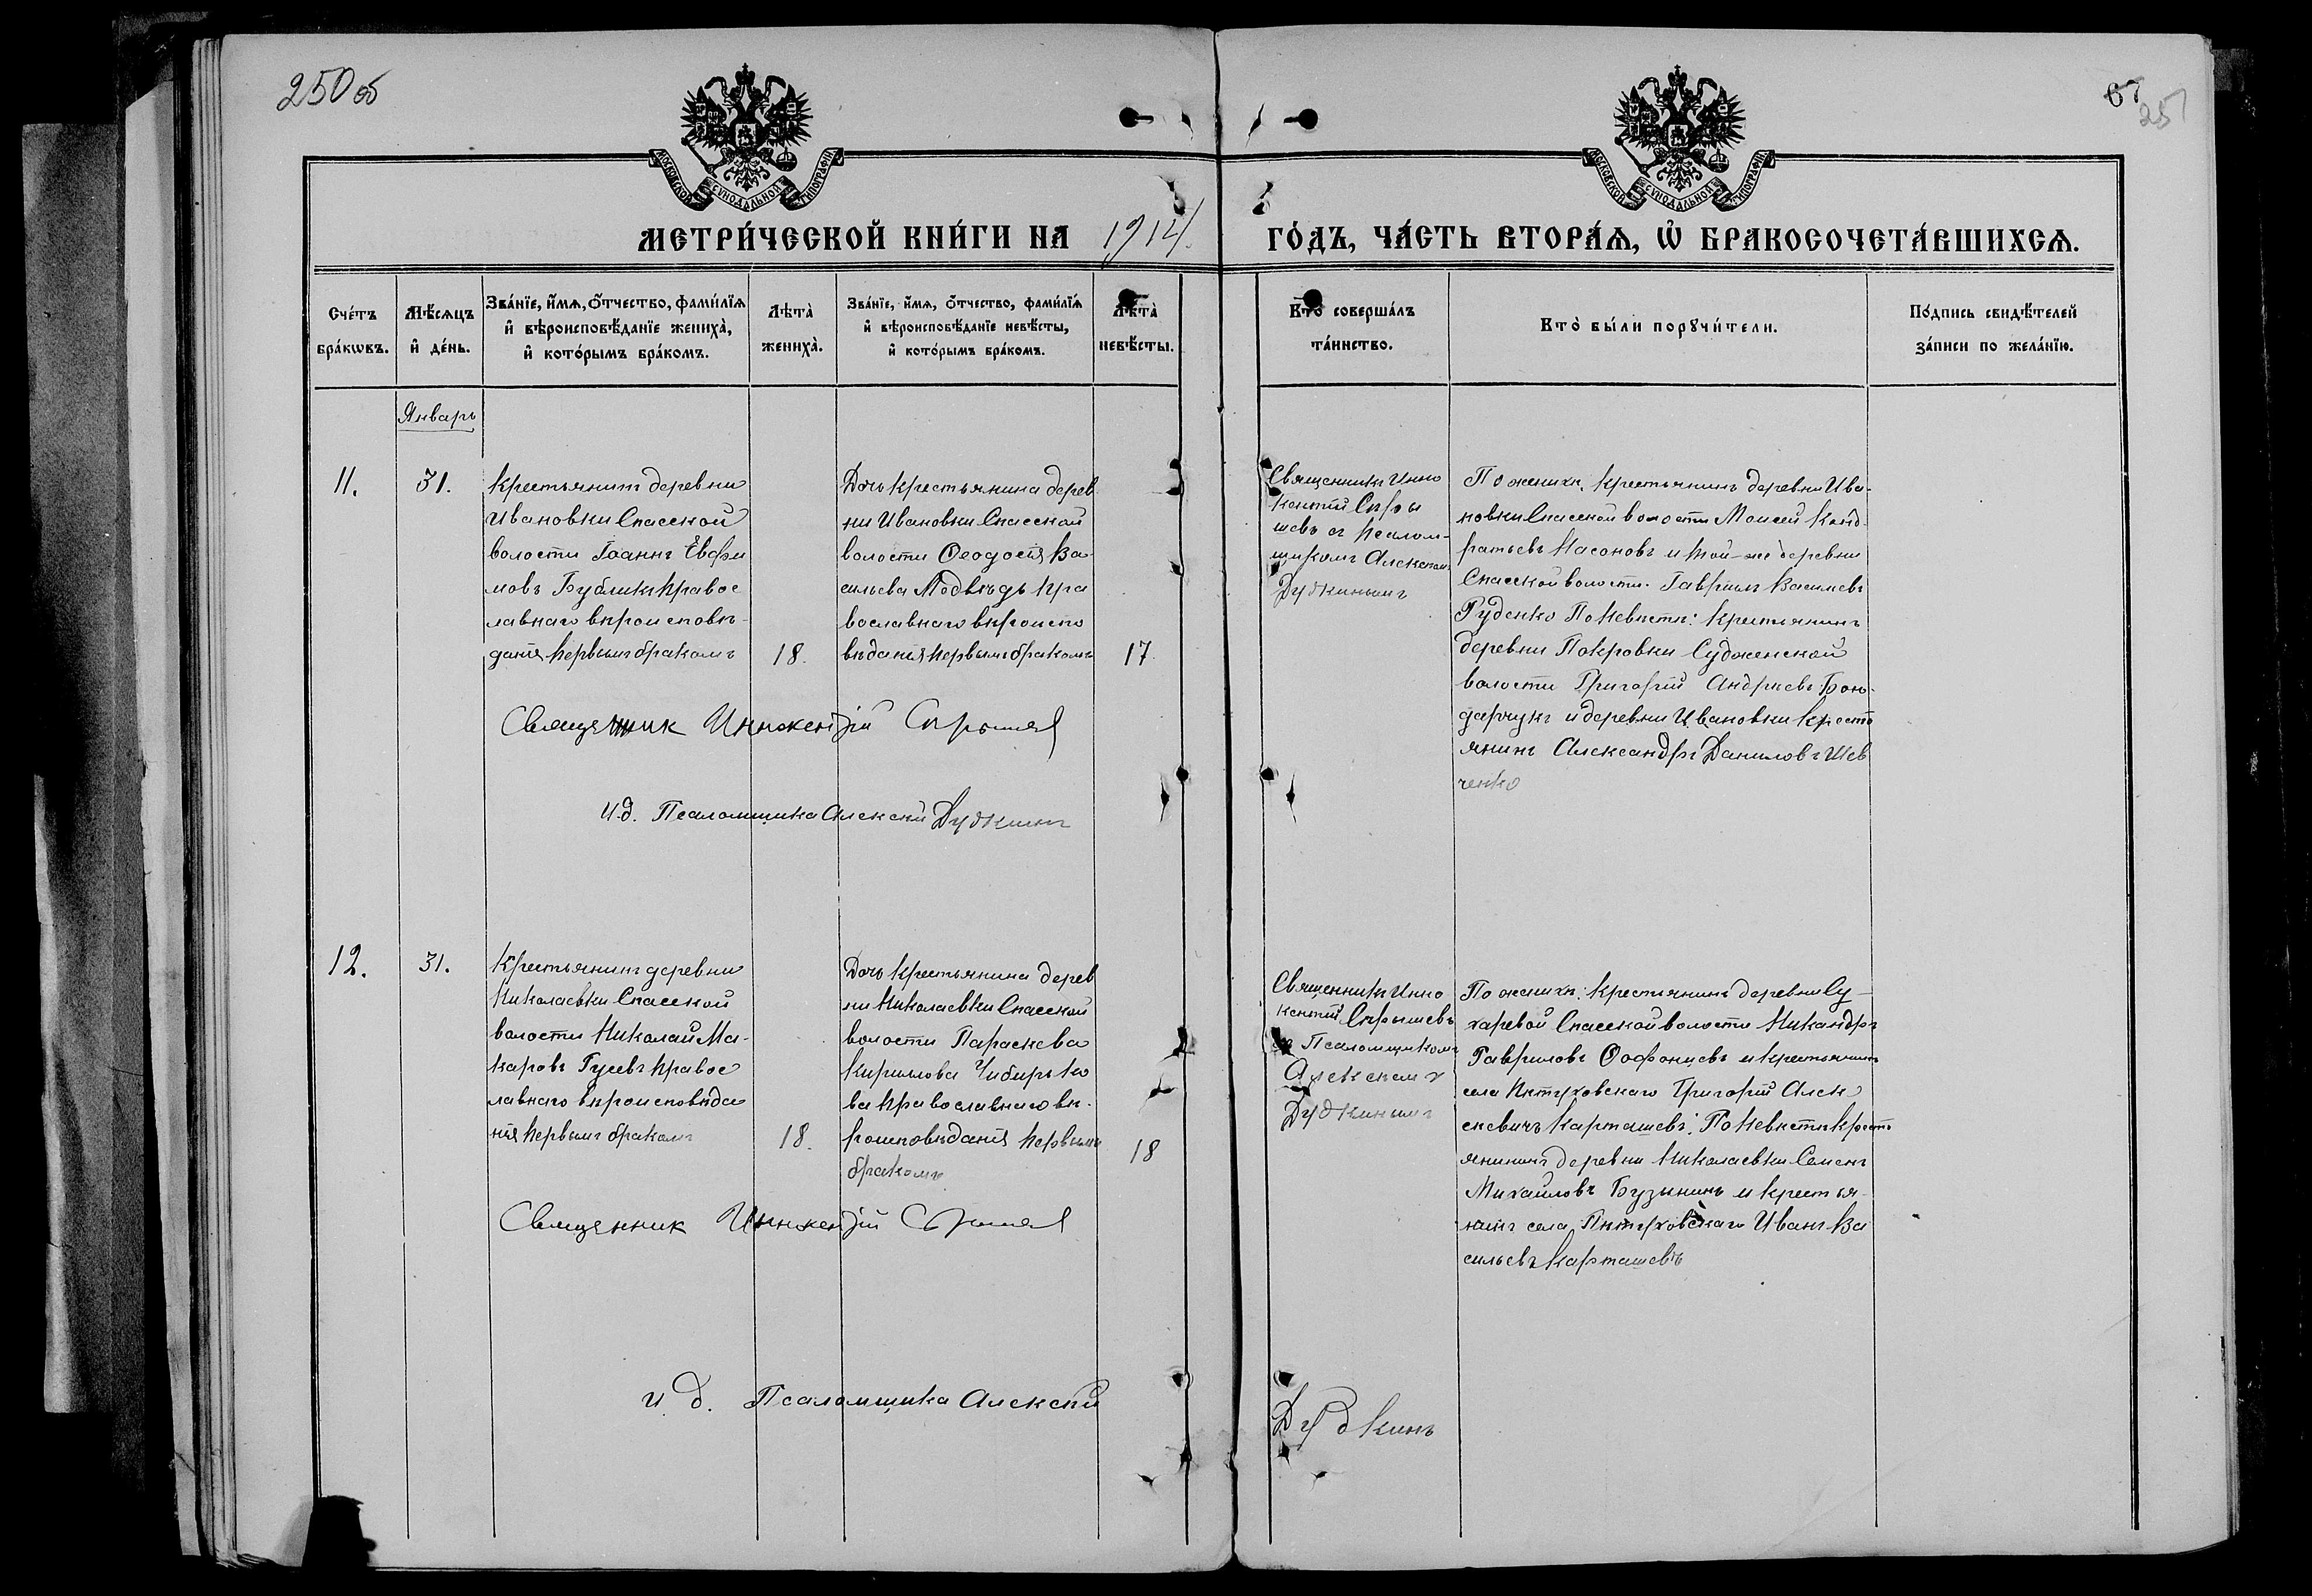 250 об
67
251
МОСКОВСКОЙ СѴНОДАЛЬНОЙ ТИПОГРАФІИ
МОСКОВСКОЙ СѴНОДАЛЬНОЙ ТИПОГРАФІИ
МЕТРИ́ЧЕСКОЙ КНИ́ГИ НА 1914
ГО́ДЪ, ЧА́СТЬ ВТОРА́Ѧ, Ѡ҆ БРАКОСОЧЕТА́ВШИХСѦ.
Сче́тъ
бра́кωвъ.
Мѣ́сѧцъ
и҆ де́нь.
Зва́нїе, и҆́мѧ, ѻ҆́тчество, фами́лїѧ
и҆ вѣроисповѣ́данїе жениха̀,
и҆ кото́рымъ бра́комъ.
Лѣта̀
жениха̀.
Зва́нїе, и҆́мѧ, ѻ҆́тчество, фами́лїѧ
и҆ вѣроисповѣ́данїе невѣ́сты,
и҆ кото́рымъ бра́комъ.
Лѣта̀
невѣ́сты.
Кто̀ соверша́лъ
та́инство.
Кто̀ бы́ли порꙋчи́тели.
По́дпись свидѣ́телей
за́писи по жела́нїю.
Январь
11.
31.
Крестьянинъ деревни
Ивановки Спасской
волости Іоаннъ Евфи
мовъ Бубликъ правос
лавнаго вѣроисповѣ-
данія первымъ бракомъ
18.
Дочь крестьянина дерев
ни Ивановки Спасской
волости Ѳеодосія Ва-
сильева Медвѣдь пра
вославнаго вѣроиспо
вѣданія первымъ бракомъ
17.
Священникъ Инно
кентій Спры
шевъ съ псалом-
щикомъ Алексѣемъ
Дудкинымъ
По женихѣ: крестьянинъ деревни Ива-
новки Спасской волости Моисей Конд-
ратьевъ Насоновъ и той-же деревни
Спасской волости Гавріилъ Васильевъ
Руденко По невѣстѣ: крестьянинъ
деревни Покровки Судженской
волости Григорій Андреевъ Бон-
дарчукъ и деревни Ивановки кресть
янинъ Александръ Даниловъ Шев
ченко
Священник Иннокентій Спрышев
И.д. Псаломщика Алексѣй Дудкинъ
12.
31.
Крестьянинъ деревни
Николаевки Спасской
волости Николай Ма-
каровъ Гусевъ правос
лавнаго вѣроисповѣда
нія первымъ бракомъ
18.
Дочь крестьянина дерев
ни Николаевки Спасской
волости Параскева
Кириллова Чибирько
ва православнаго вѣ-
роисповѣданія первымъ
бракомъ
18
Священникъ Инно
кентій Спрышевъ
съ Псаломщикомъ
Алексѣемъ
Дудкинымъ
По женихѣ: крестьянинъ деревни Су-
харевой Спасской волости Никандръ
Гавриловъ и крестьянинъ
села Пѣтуховскаго Григорій Алек
сѣевичъ Карташевъ; По невѣстѣ кресть
янинъ деревни Николаевки Семенъ
Михайловъ Бузынинъ и крестья-
нинъ села Пѣтуховскаго Иванъ Ва
сильевъ Карташевъ
Священник Иннокентій Спрышев
и. д. Псаломщика Алексѣй
Дудкинъ